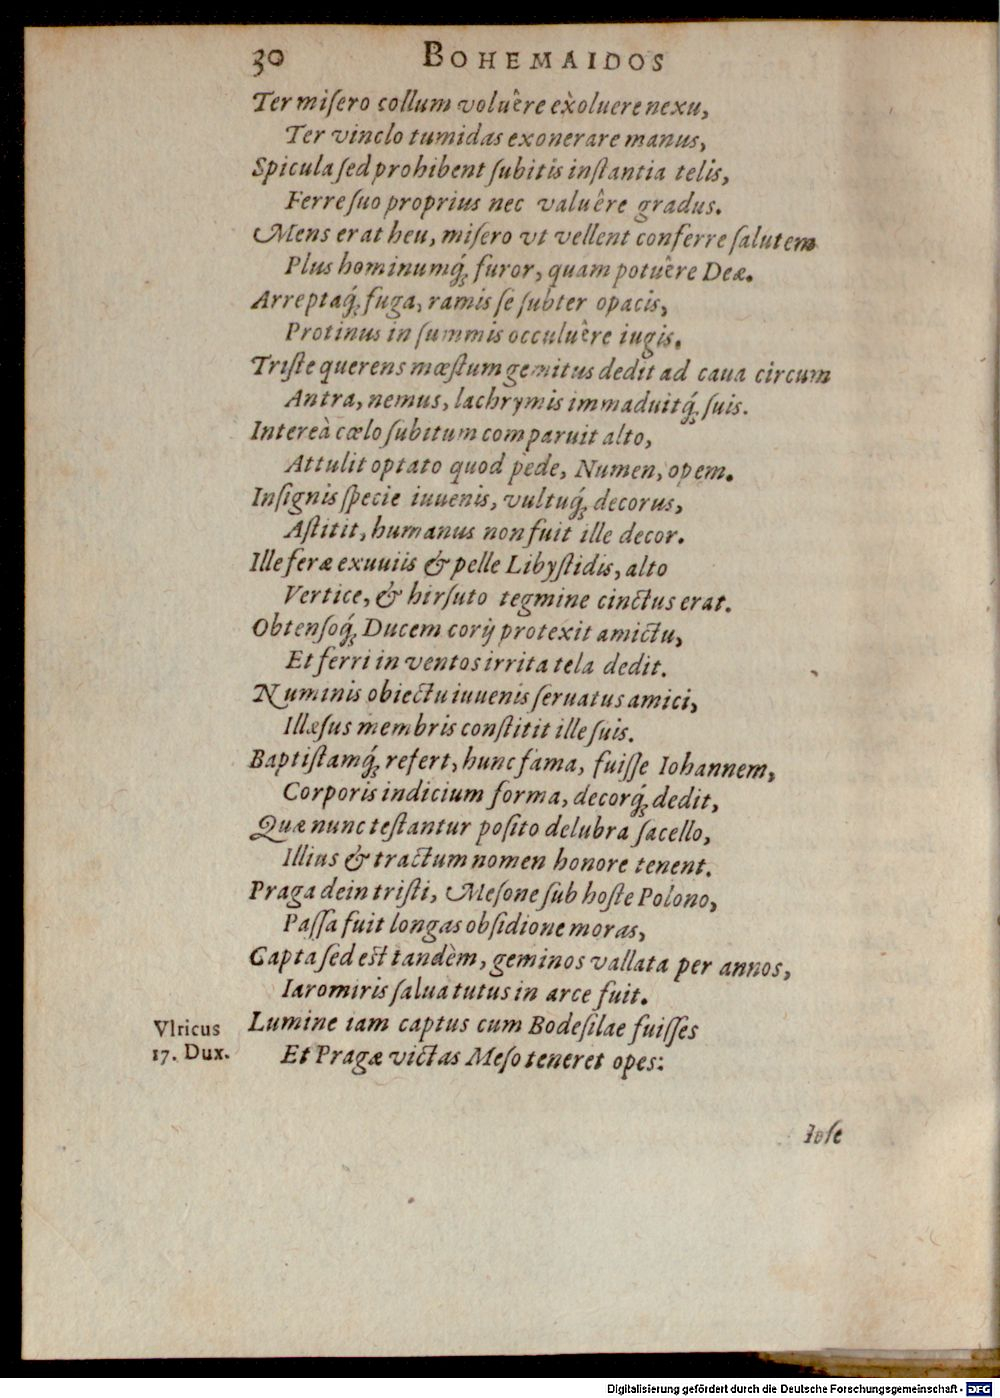 30 BOHEMAIDOS
Ter miſero collum voluêre exoluere nexu,
Ter vinclo tumidas exonerare manus,
Spicula ſed prohibent ſubitis inſtantia telis,
Ferre ſuo proprius nec valuêre gradus.
Mens erat heu, miſero vt vellent conferre ſalutem
Plus hominumq́; furor, quam potuêre Deæ.
Arreptaq́; fuga, ramis ſe ſubter opacis,
Protinus in ſummis occuluêre iugis.
Triſte querens mœſtum gemitus dedit ad caua circum
Antra, nemus, lachrymis immaduitq́; ſuis.
Intereà cœlo ſubitum comparuit alto,
Attulit optato quod pède, Numen, opem.
Inſignis ſpecie iuuenis, vultuq́; decorus,
Aſtitit, humanus non fuit ille decor.
Ille feræ exuuiis & pelle Libyſtidis, alto
Vertice, & hirſuto tegmine cinctus erat.
Obtenſoq́; Ducem corij protexit amictu,
Et ferri in ventos irrita tela dedit.
Numinis obiectu iuuenis ſeruatus amici,
Illæſus membris conſtitit ille ſuis.
Baptiſtamq́; refert, hunc fama, fuiſſe Iohannem,
Corporis indicium forma, decorq́; dedit,
Quæ nunc teſtantur poſito delubra ſacello,
Illius & tractum nomen honore tenent.
Praga dein triſti, Meſone ſub hoſte Polono,
Paſſa fuit longas obſidione moras,
Capta ſed eſt tandèm, geminos vallata per annos,
Iaromiris ſalua tutus in arce fuit.
Vlricus
17. Dux.
Lumine iam captus cum Bodeſilae fuiſſes
Et Pragæ victas Meſo teneret opes:
Ioſe
Digitalisierung gefördert durch die Deutsche Forschungsgemeinschaft - DFG